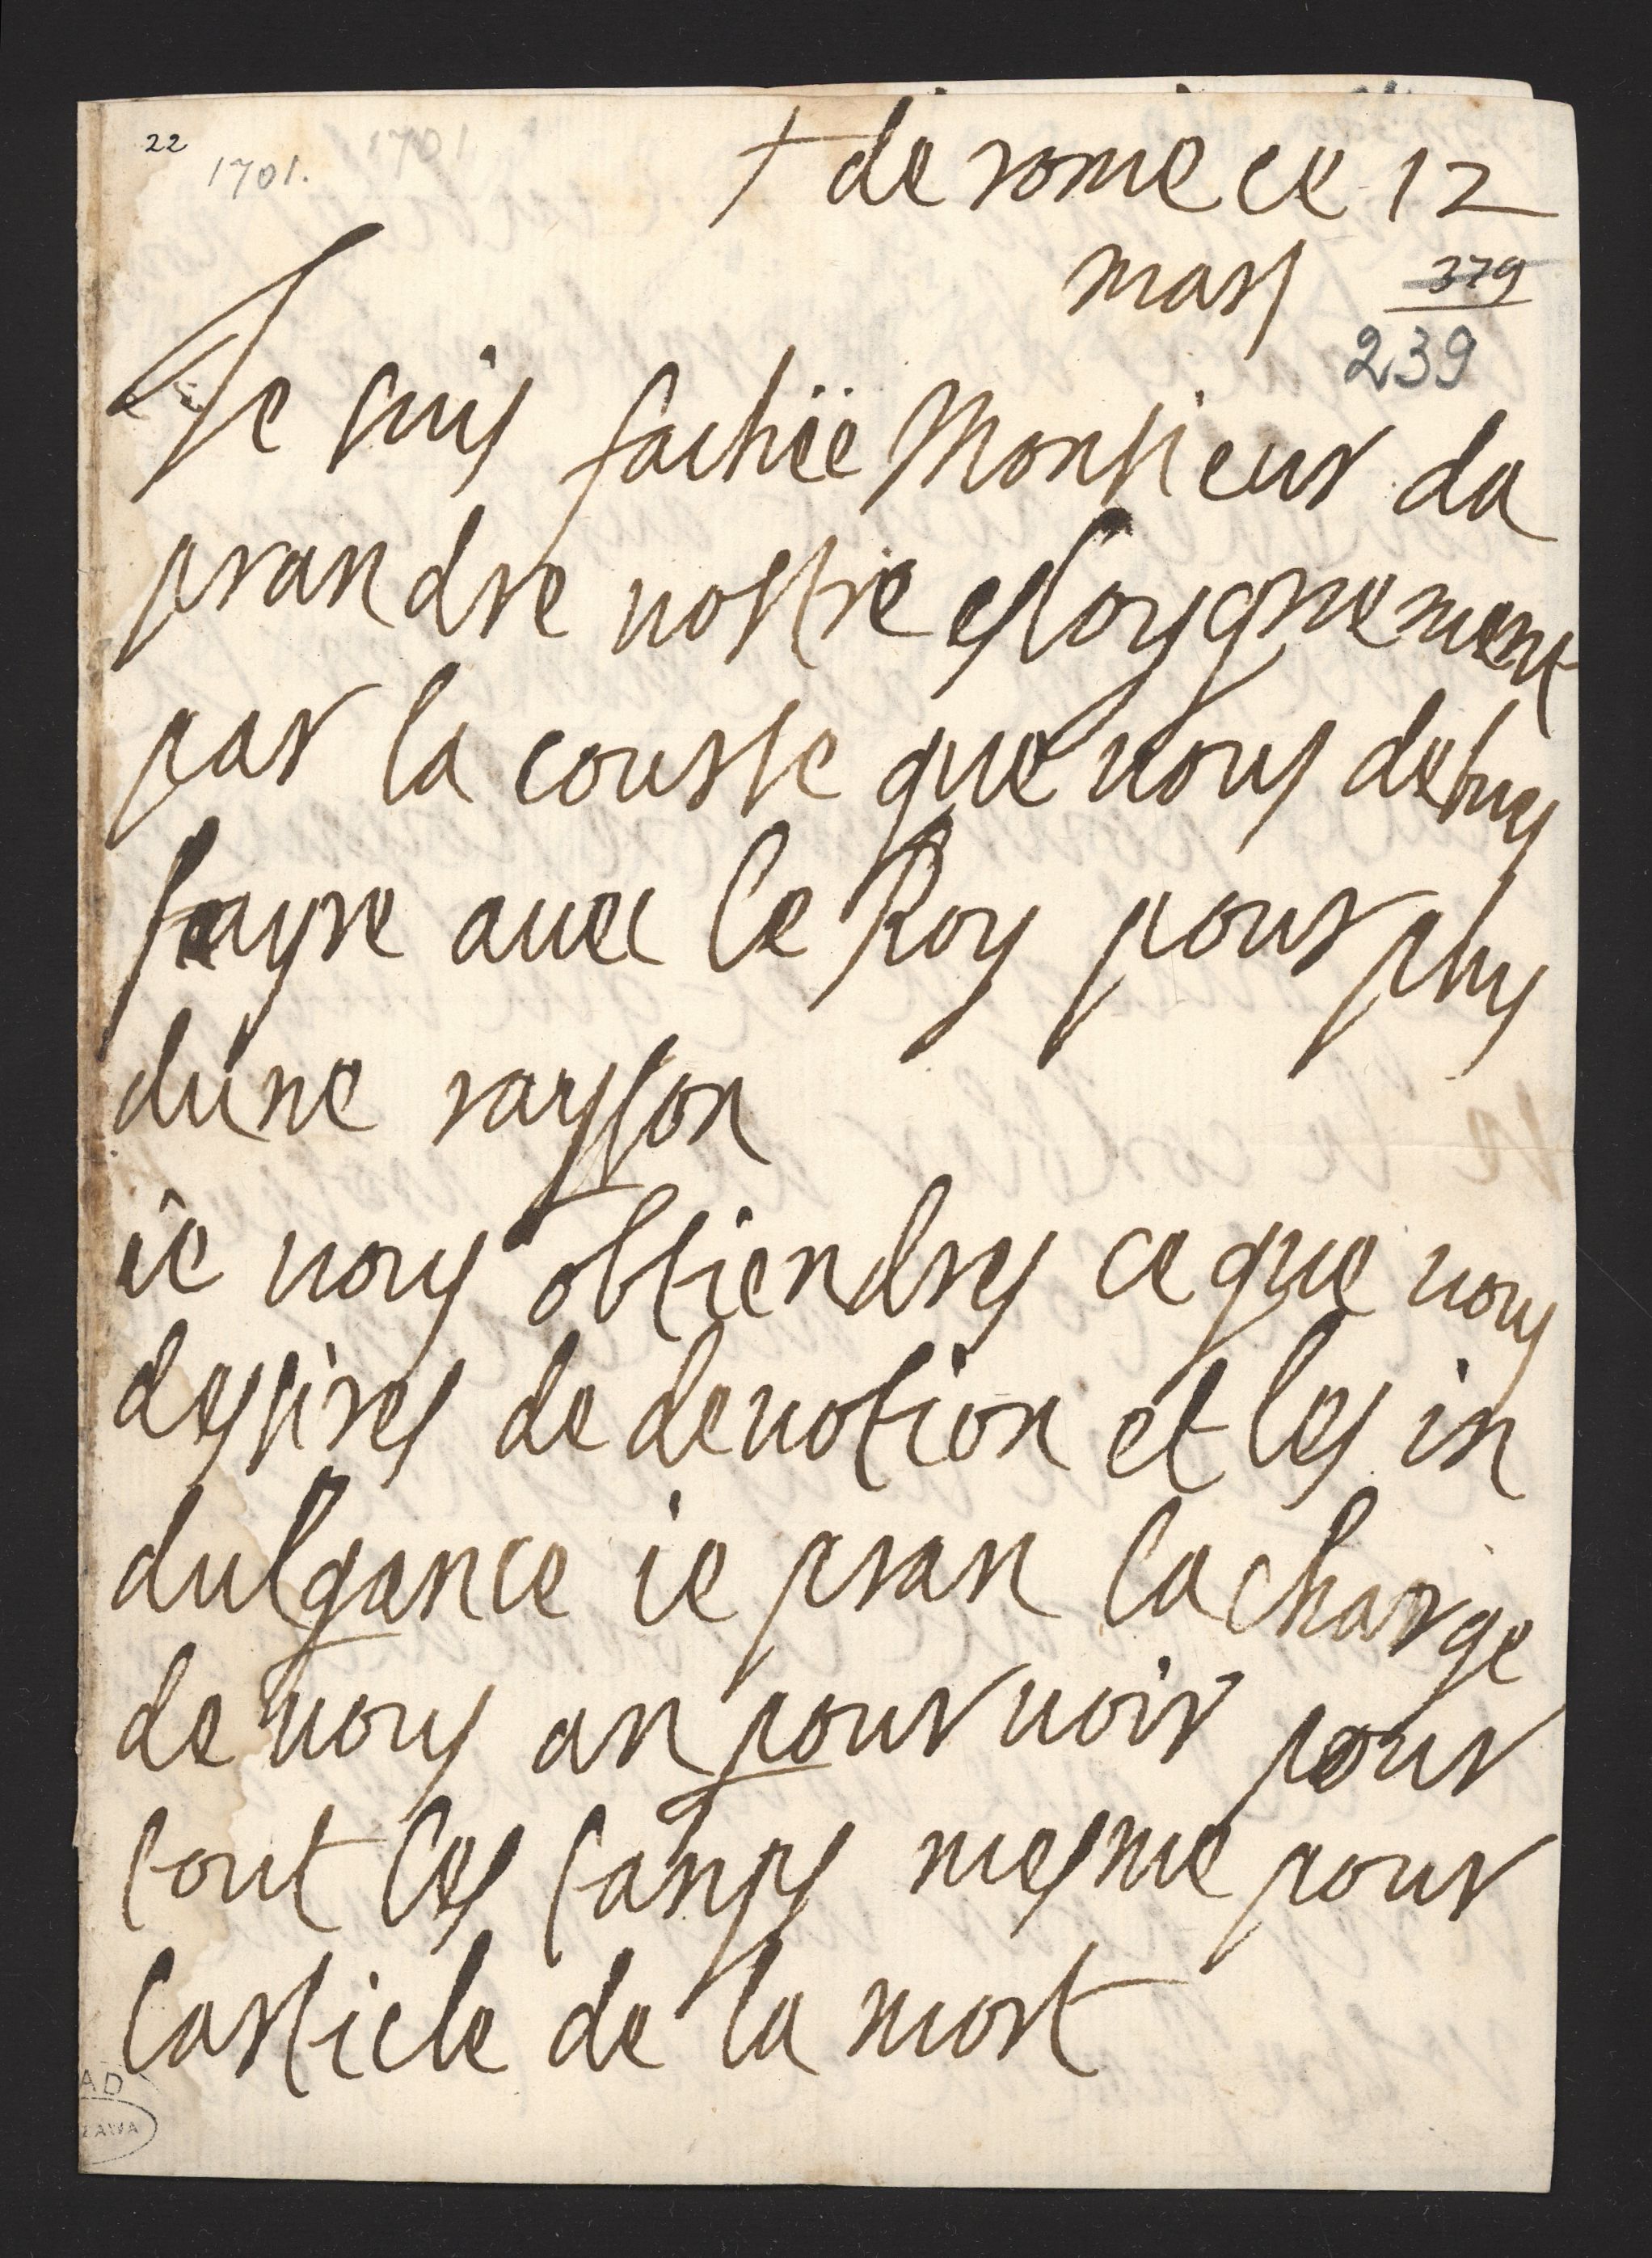 22
1701.
+ de rome ce 12
mars
379
239
Je suis fachëe Monsieur da
prandre vostre esloygnement
par la course que vous deves
fayre avec le Roy pour plus
dune raysson
ie vous obtiendres ce que vous
dessires de devotion et les in
dulgance ie pran la charge
de vous an pourvoir pour
tout les tamps mesme pour
larticle de la mort
AD
ZAWA